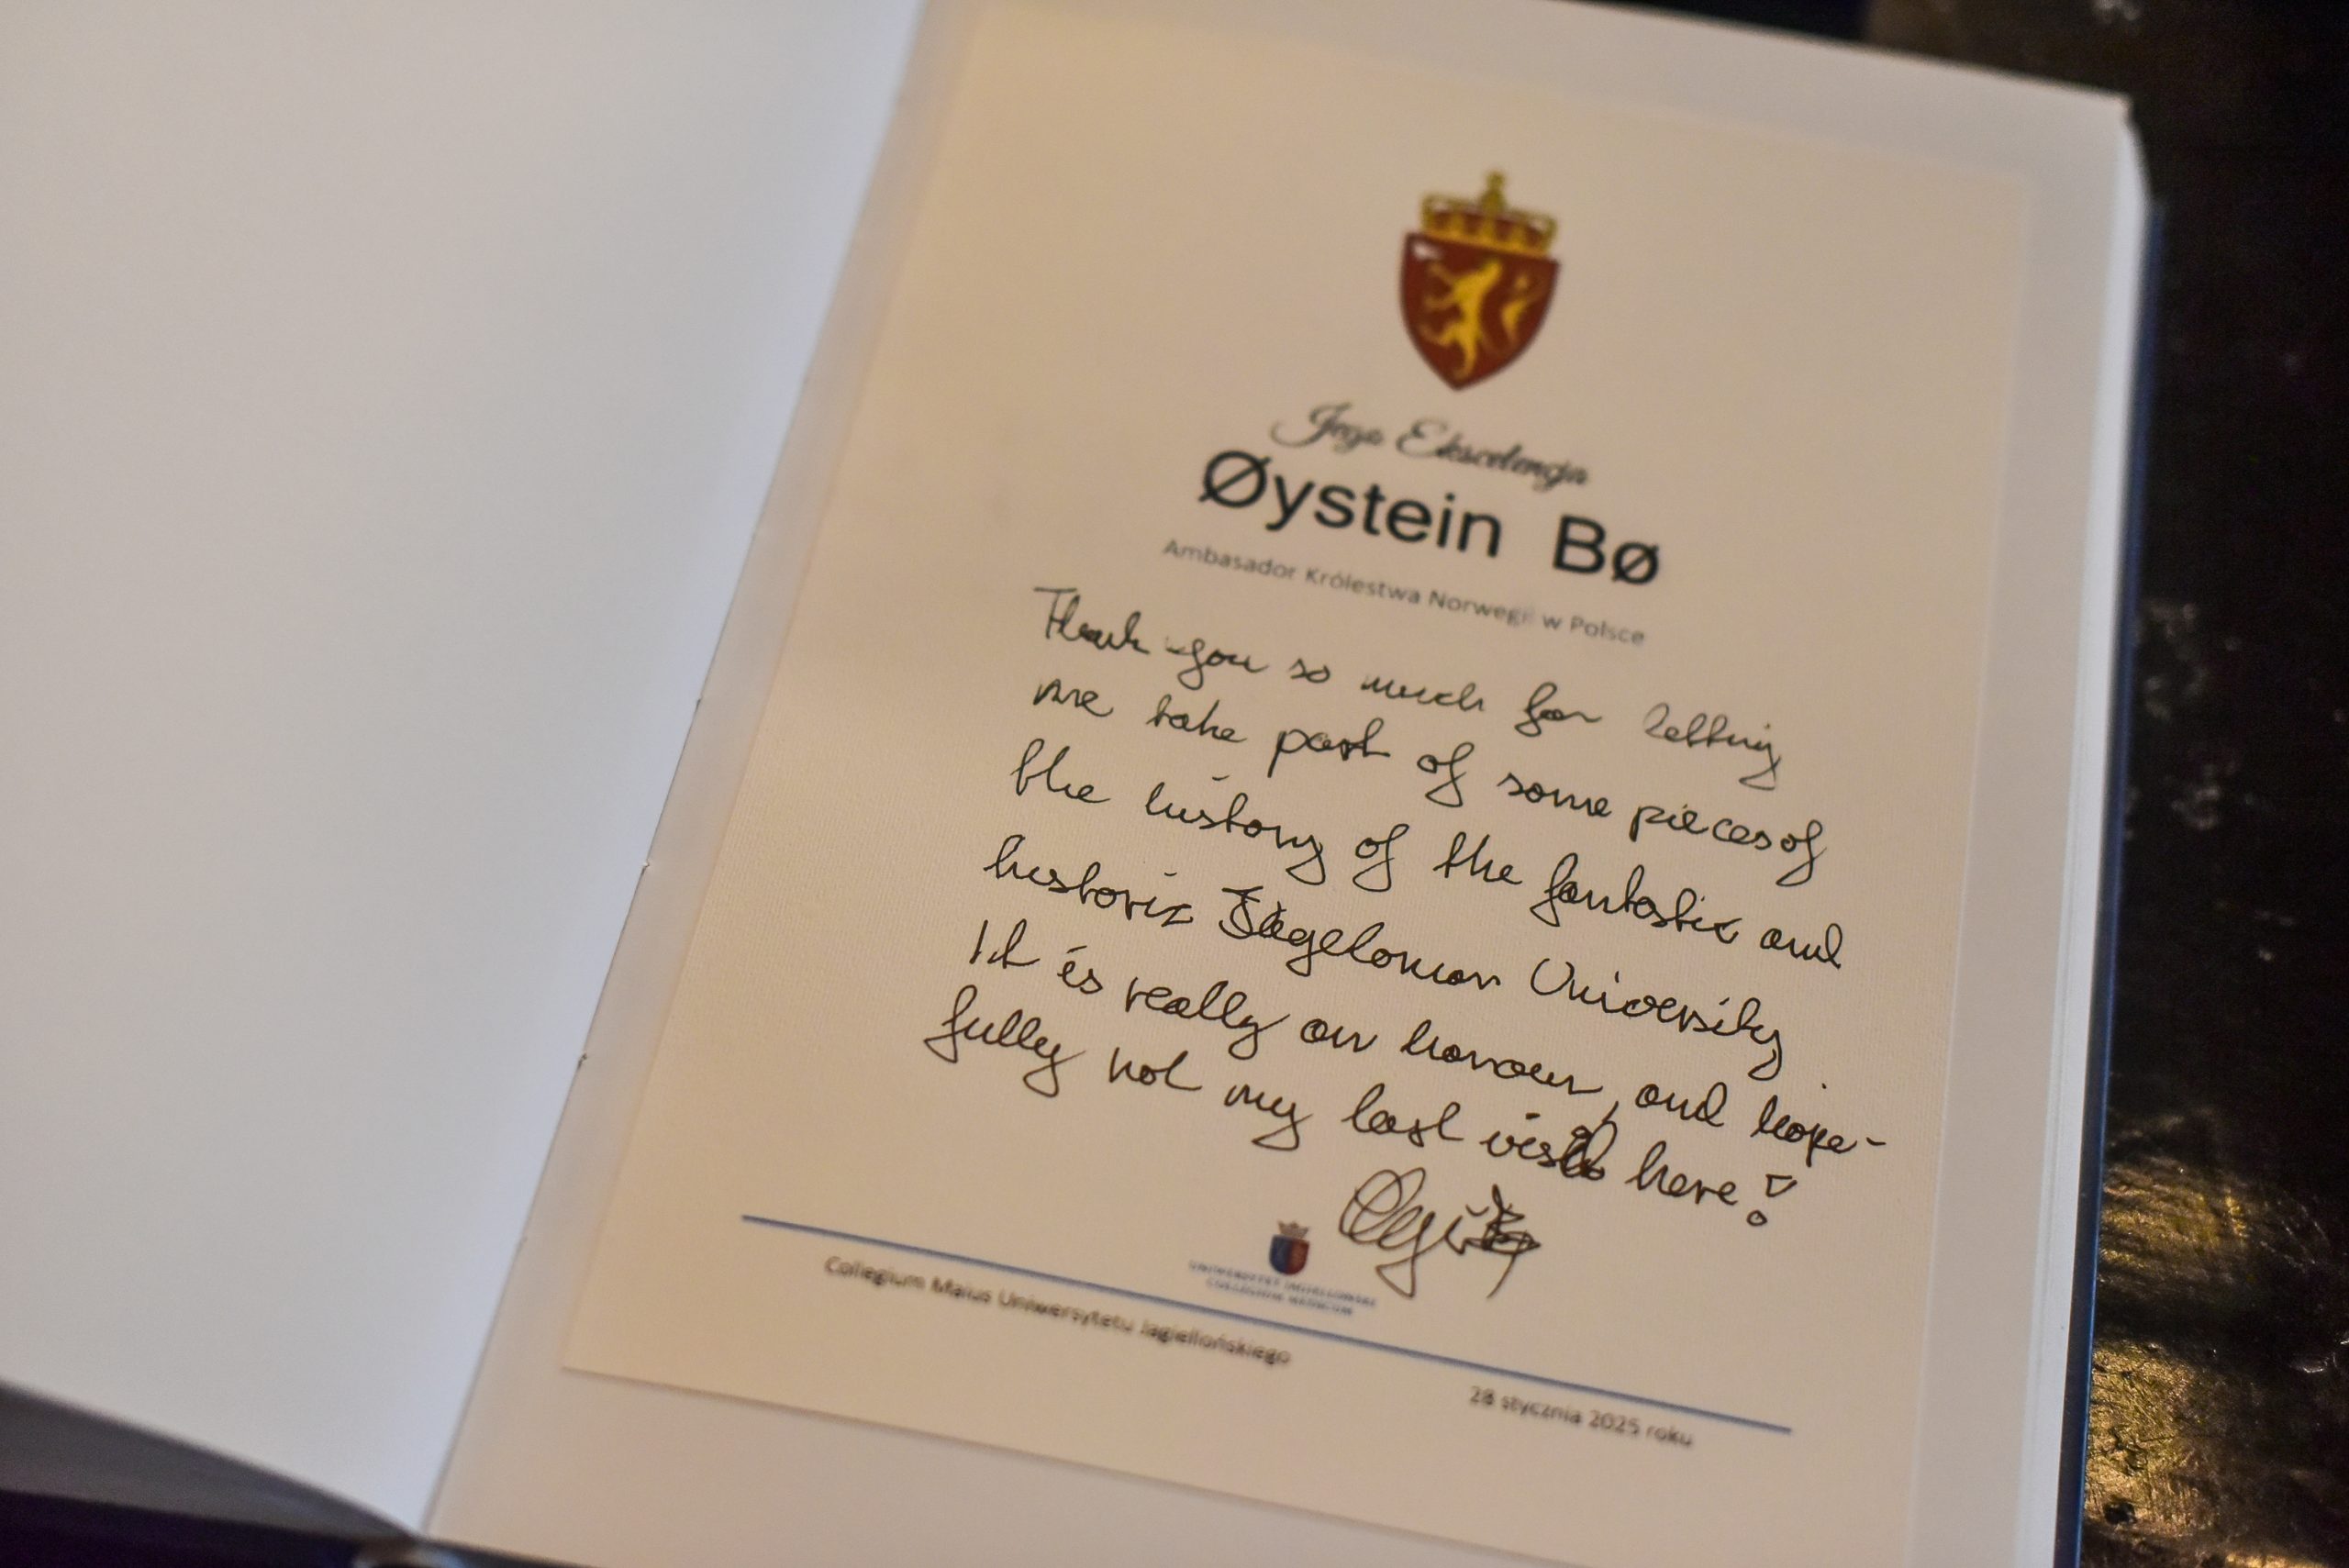 Jego Ekscelencja
Øystein Bø
Ambasador Królestwa Norwegii w Polsce
Thank you so much for letting
me take part of some pieces of
the history of the fantastic and
historic Jagelonian University
It is really an honour, and hope-
fully not my last visit here!
UNIWERSYTET JAGIELLOŃSKI
COLLEGIUM MEDICUM
Collegium Maius Uniwersytetu Jagiellońskiego
28 stycznia 2025 roku